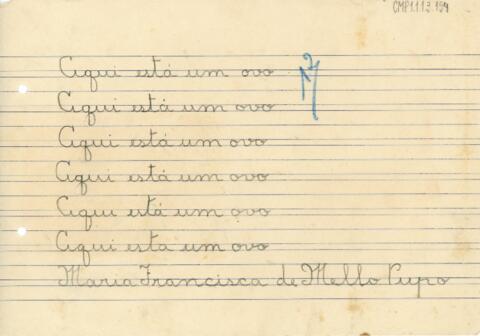 CMP1.1.1.2.194
Aqui está um ovo
Aqui está um ovo
Aqui está um ovo
Aqui está um ovo
Aqui está um ovo
Aqui esta um ovo
Maria Francisca de Mello Pupo